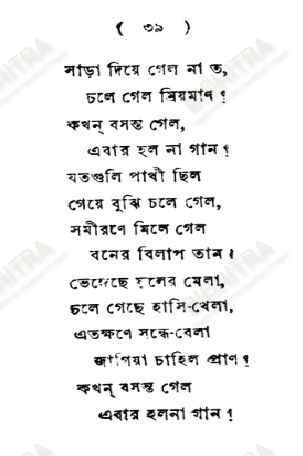 ( ৩৯ )
সাড়া দিয়ে গেল না ত,
চলে গেল ম্রিয়মাণ !
কখন্ বসন্ত গেল,
এবার হল না গান !
যতগুলি পাখী ছিল
গেয়ে বুঝি চলে গেল,
সমীরণে মিলে গেল
বনের বিলাপ তান !
ভেঙ্গেছে ফুলের মেলা,
চলে গেছে হাসি-খেলা,
এতক্ষণে সন্ধে-বেলা
জাগিয়া চাহিল প্রাণ !
কখন্ বসন্ত গেল
এবার হলনা গান !